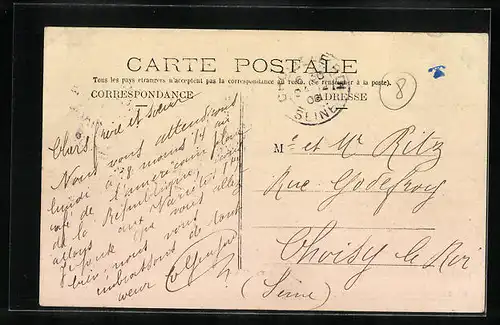 CARTE POSTALE
Tous les pays étrangers n'acceptent pas la correspondance au recto. (Se renseigner à la poste).
CORRESPONDANCE
ADRESSE
8
SEINE
Chers frère et sœur
Nous vous attendons
lundi à 8 moins 1/4 au
café de l'américain place
de la République, nous
allons aux Variétés
que vous allez
vous
embrassons de tout
Me et Mr Ritz
Rue Godefroy
Choisy le Roi
(Seine)